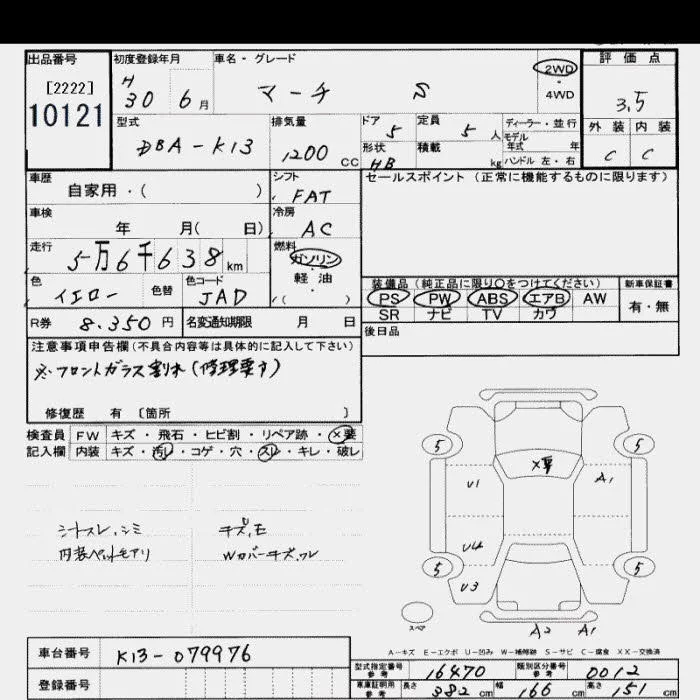 出品番号 初度登録年月 車名・グレード 評価点
[2222] H 30 6月 マーチ S 2WD・4WD 3.5
10121
型式 排気量 ドア 定員 ディーラー・並行 外装 内装
DBA-K13 1200 CC 5 5人 モデル年式 年 C C
形状 HB 積載 kg ハンドル 左・右
車歴 シフト セールスポイント (正常に機能するものに限ります)
自家用・( ) FAT
車検 冷房
年 月( 日) AC
走行 燃料
5万6千638km ガソリン・軽油・( )
色 色替 色コード 装備品 (純正品に限り○をつけてください) 新車保証書
イエロー JAD PS PW ABS エアB AW 有・無
SR ナビ TV カワ
R券 8.350円 名変通知期限 月 日 後日品
注意事項申告欄(不具合内容等は具体的に記入して下さい)
※フロントガラス割れ(修理要す)
修復歴 有 〔箇所 〕
検査員 FW キズ・飛石・ヒビ割・リペア跡・×要
記入欄 内装 キズ・汚レ・コゲ・穴・スレ・キレ・破レ
5 5
×要
U1 A1
シートスレ、シミ キズ,E
内装ペットモアリ Wカバーキズ,ワレ
U2
5 5
U3
スペア
A2 A1
A-キズ E-エクボ U-凹み W-補修跡 S-サビ C-腐食 XX-交換済
車台番号 K13-079976
型式指定番号 参考 16470 類別区分番号 参考 0012
登録番号 車庫証明用 参考 長さ 382cm 幅 166cm 高さ 151cm